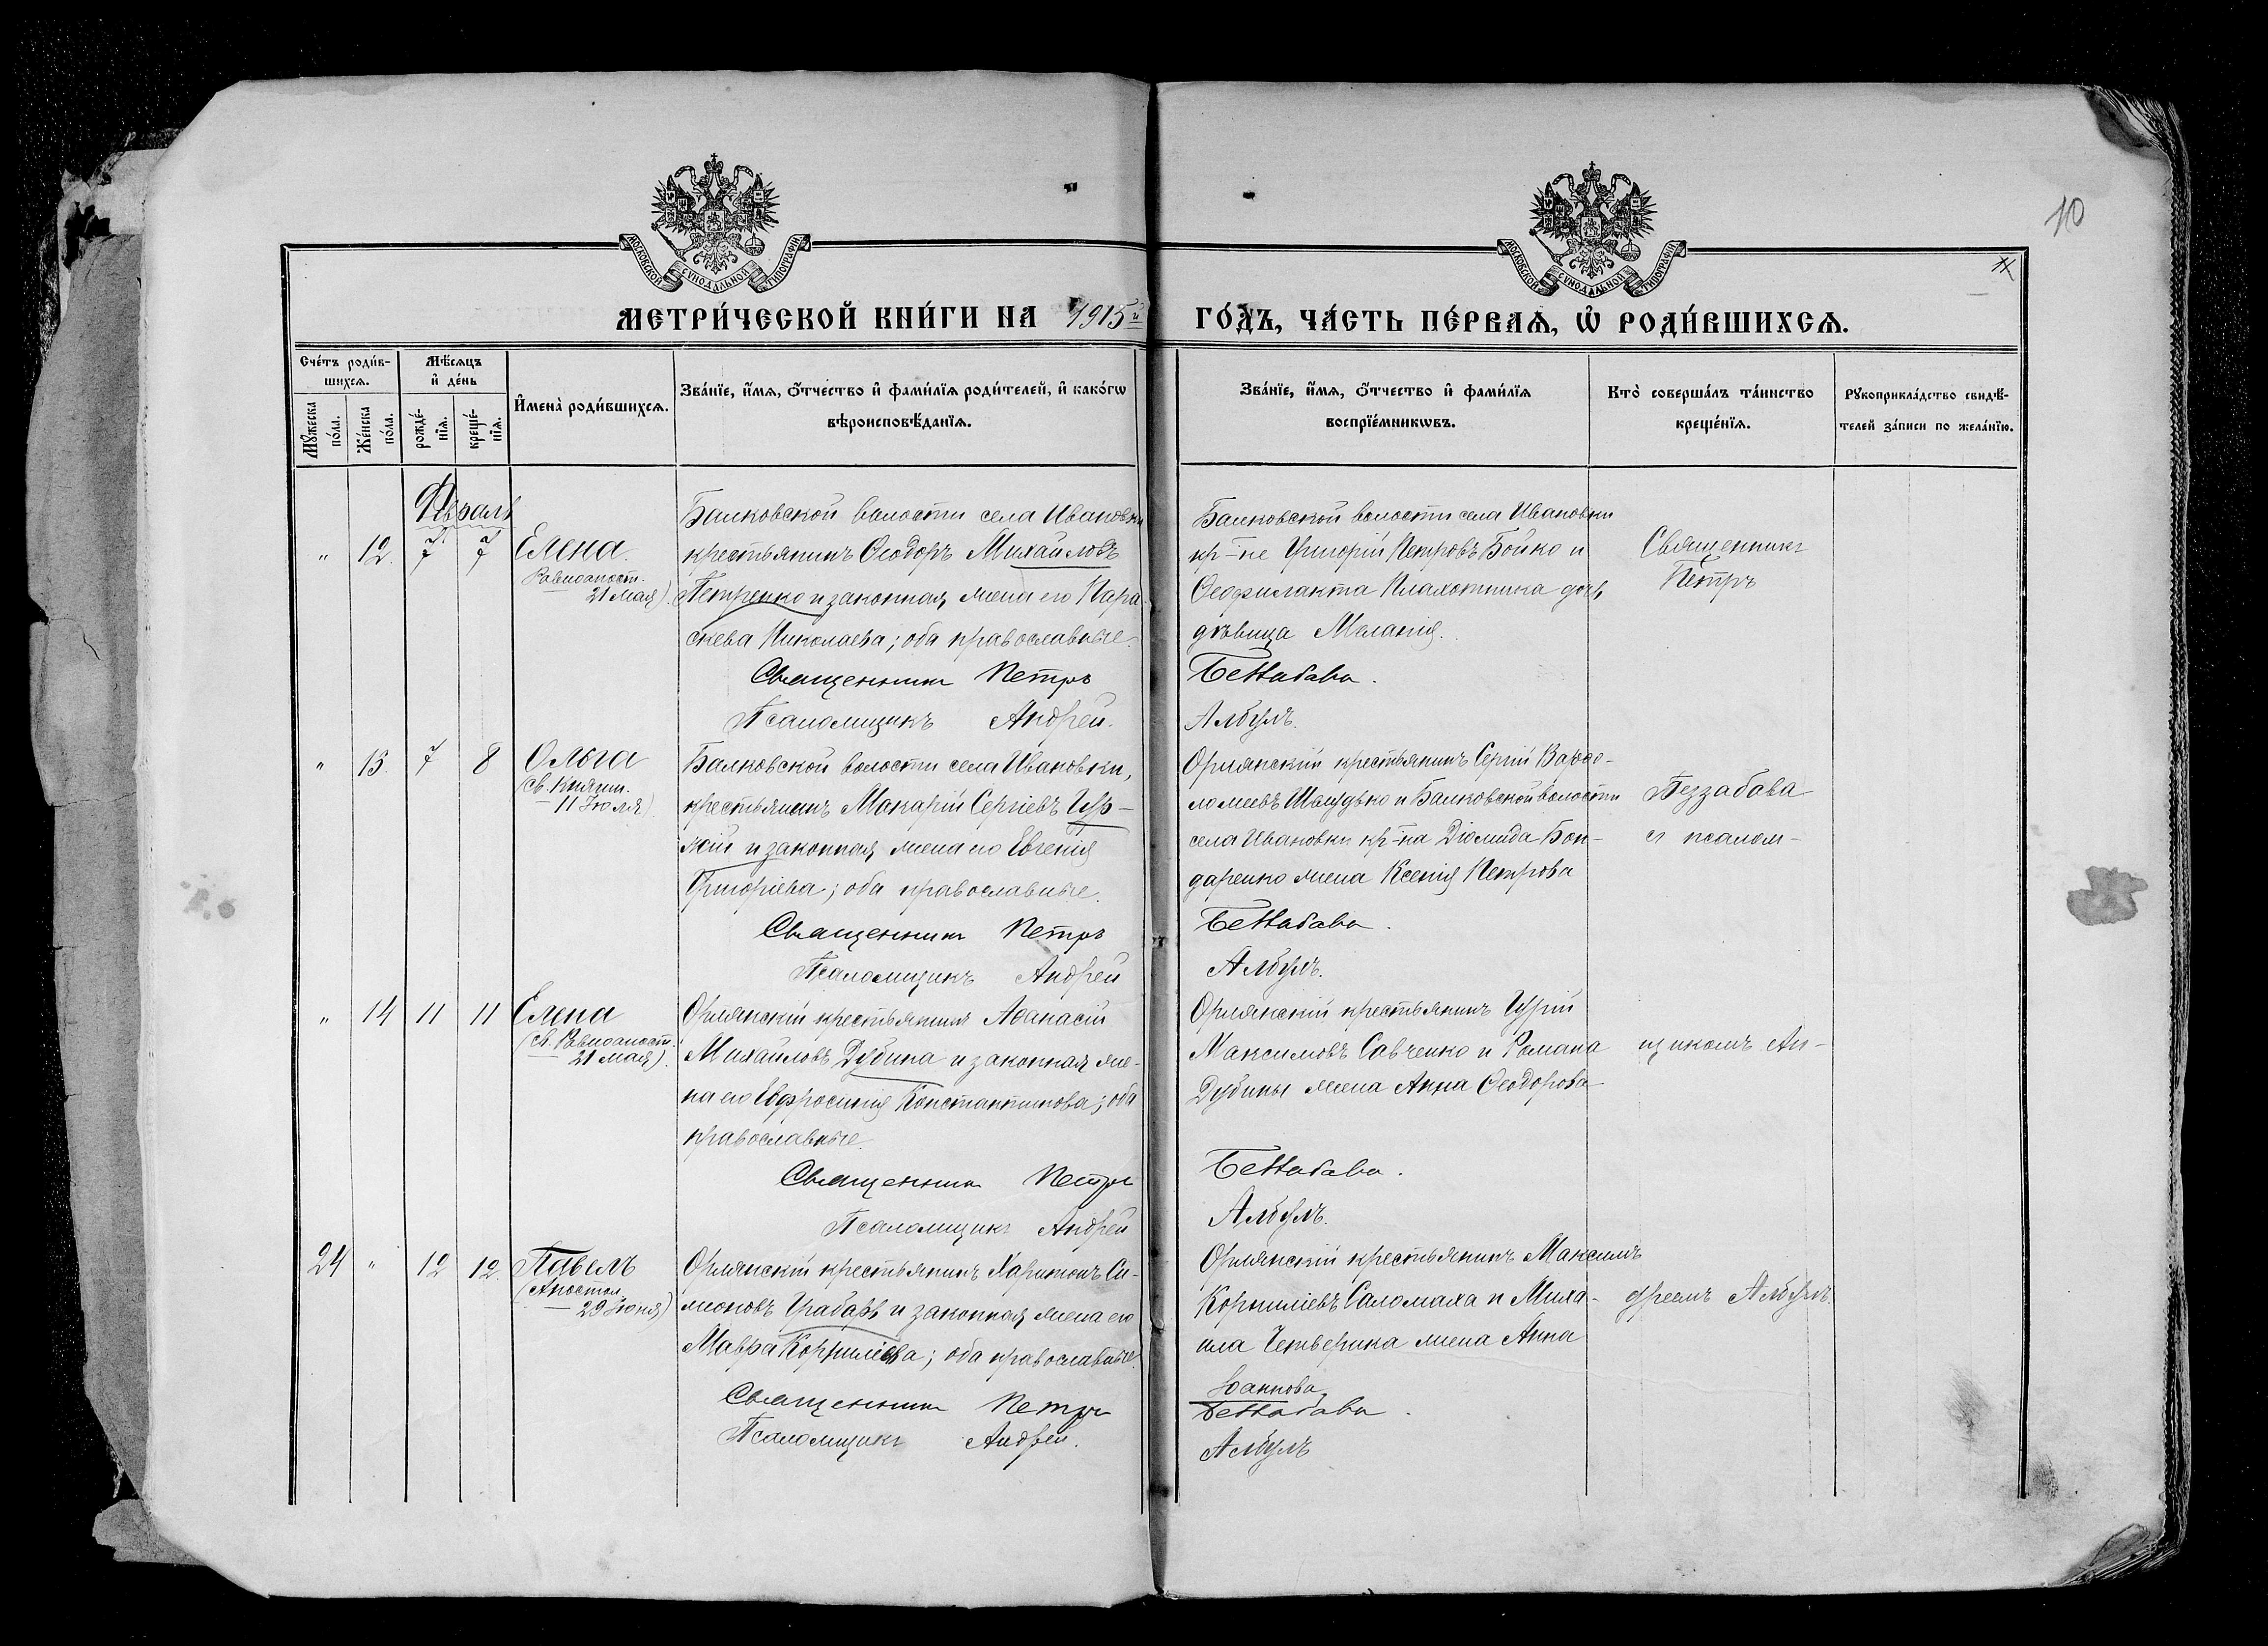 10
11
МОСКОВСКОЙ СУНОДАЛЬНОЙ ТИПОГРАФІИ
МОСКОВСКОЙ СУНОДАЛЬНОЙ ТИПОГРАФІИ
МЕТРИ́ЧЕСКОЙ КНИ́ГИ НА 1915й ГО́ДЪ, ЧА́СТЬ ПЕ́РВАѦ, Ѡ҆ РОДИ́ВШИХСѦ.
Сче́тъ роди́в-
шихсѧ.
Мꙋ́жеска по́ла.
Же́нска по́ла.
Мѣ́сѧцъ
и҆ де́нь
рожде́-
нїѧ.
креще́-
нїѧ.
И҆мена̀ роди́вшихсѧ.
Зва́нїе, и҆́мѧ, ѻ҆́тчество и҆ фами́лїѧ роди́телей, и҆ како́гѡ
вѣроисповѣ́данїѧ.
Зва́нїе, и҆́мѧ, ѻ҆́тчество и҆ фами́лїѧ
воспрїе́мникѡвъ.
Кто̀ соверша́лъ та́инство
креще́нїѧ.
Рꙋкоприкла́дство свидѣ́-
телей за́писи по жела́нїю.
Февраль
" 12. 7 7 Елена
Равноапост.
21 мая).
Балковской волости села Ивановки
крестьянинъ Ѳеодоръ Михайловъ
Петренко и законная жена его Пара-
скева Николаева; оба православные.
Священникъ Петръ
Псаломщикъ Андрей.
Балковской волости села Ивановки
кр-не Григорій Петровъ Бойко и
Ѳеофилакта Плахотника дочь
дѣвица Меланія.
Беззабава.
Албулъ.
Священникъ
Петръ
" 13. 7 8 Ольга
(св. Княгин.
11 Іюля).
Балковской волости села Ивановки,
крестьянинъ Макарій Сергіевъ
и законная жена его Евгенія
Григоріева; оба православные.
Священникъ Петръ
Псаломщикъ Андрей
Орлянскій крестьянинъ Сергій Варѳо-
ломеевъ и Балковской волости
села Ивановки кр-на Діомида Бон-
даренко жена Ксенія Петрова
Беззабава.
Албулъ.
Беззабава
с псалом-
" 14 11 11 Елена
(св. Равноапост.
21 мая).
Орлянскій крестьянинъ Аѳанасій
Михайловъ Дубина и законная же-
на его Евфросинія Константинова; оба
православные.
Священникъ Петръ
Псаломщикъ Андрей
Орлянскій крестьянинъ Гурій
Максимовъ Савченко и Романа
Дубины жена Анна Ѳеодорова
Беззабава.
Албулъ.
щикомъ Ан-
24 " 12 12. Павелъ
(Апостол.
29 Іюня)
Орлянскій крестьянинъ Харитонъ Си-
меоновъ Грабарь и законная жена его
Мавра Корниліева; оба православные.
Священникъ Петръ
Псаломщикъ Андрей.
Орлянскій крестьянинъ Максимъ
Корниліевъ Саломаха и Миха-
ила Четверика жена Анна
Іоаннова
Беззабава.
Албулъ
дреемъ Албулъ.